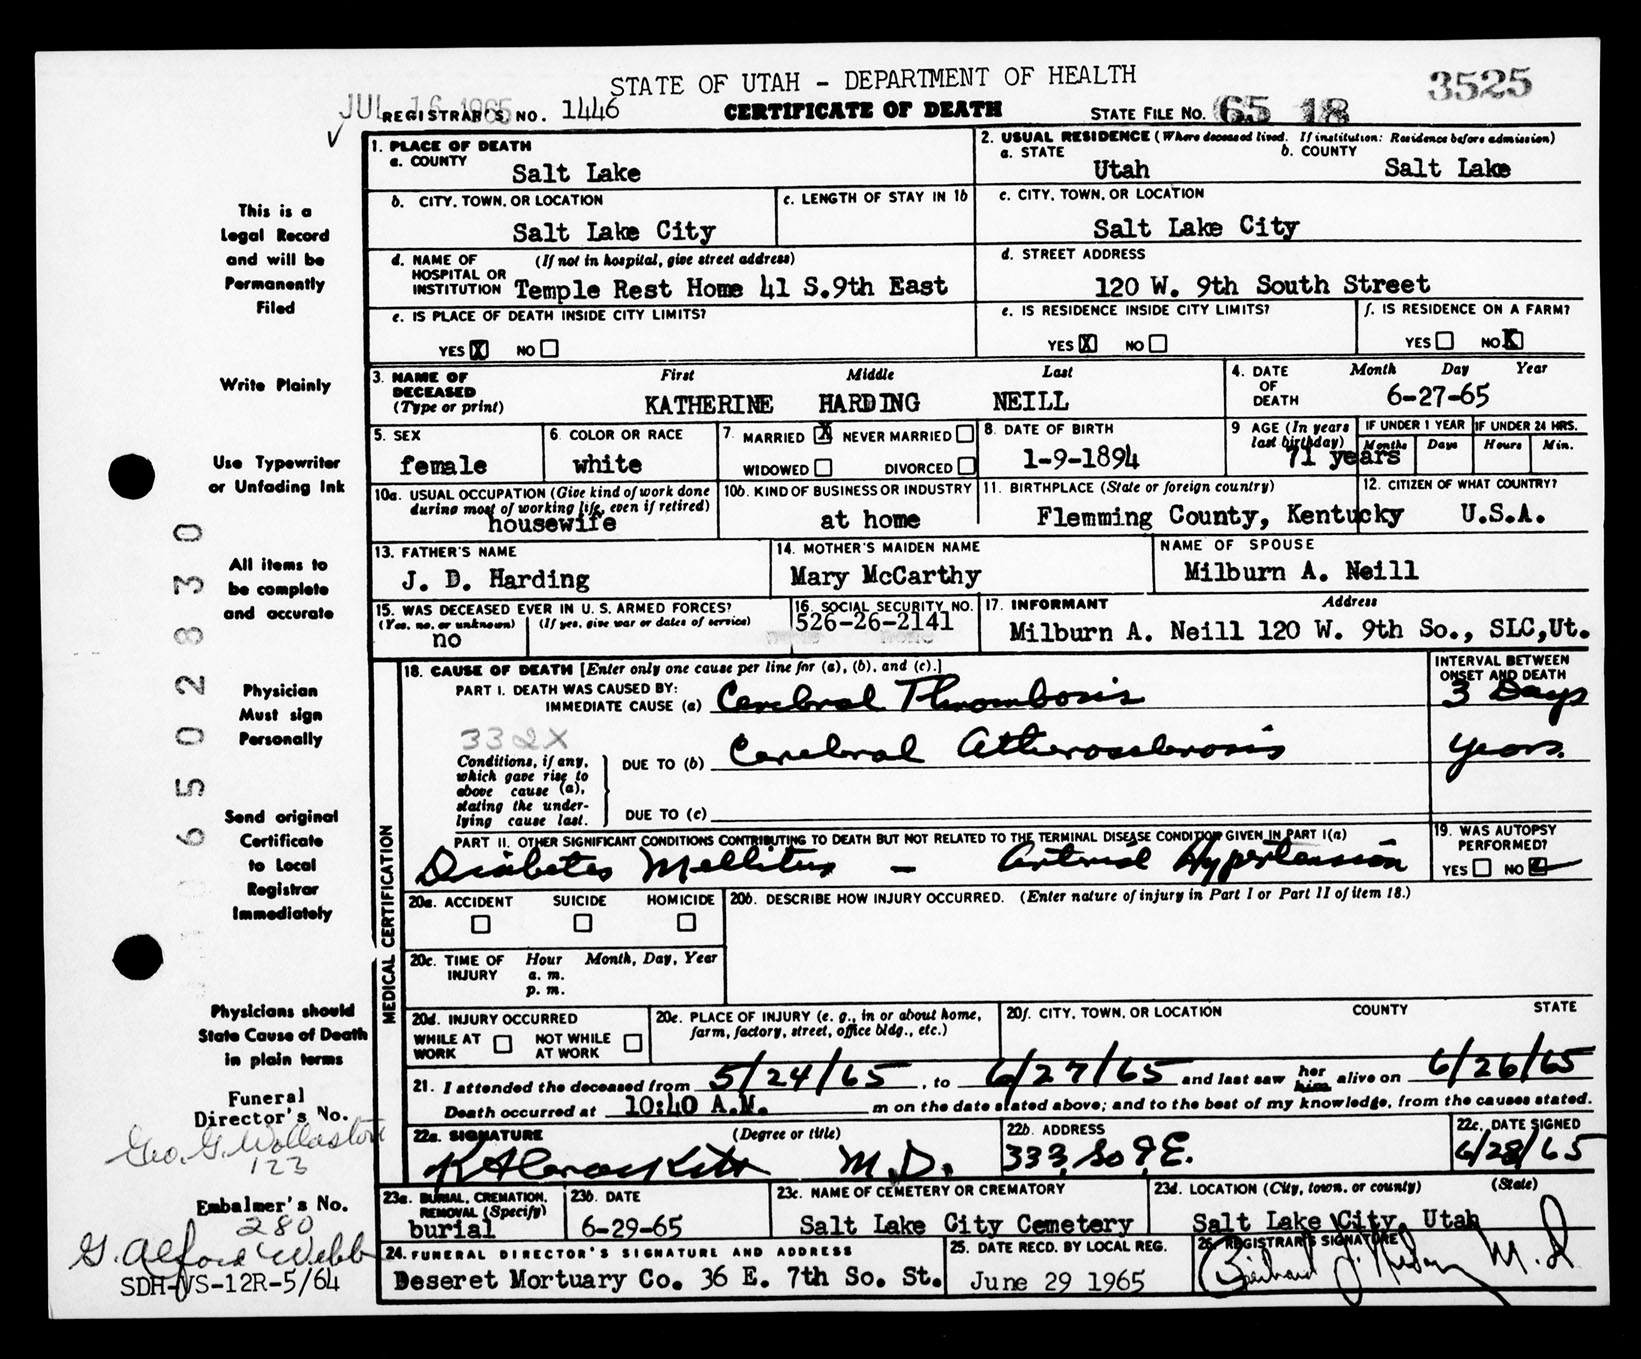 STATE OF UTAH - DEPARTMENT OF HEALTH
3525
JUL 16 1965
REGISTRAR'S NO. 1446
CERTIFICATE OF DEATH
STATE FILE NO. 65 18
1. PLACE OF DEATH
a. COUNTY
Salt Lake
2. USUAL RESIDENCE (Where deceased lived. If institution: Residence before admission)
a. STATE b. COUNTY
Utah Salt Lake
b. CITY, TOWN, OR LOCATION
Salt Lake City
c. LENGTH OF STAY IN 1b
c. CITY, TOWN, OR LOCATION
Salt Lake City
d. NAME OF HOSPITAL OR INSTITUTION (If not in hospital, give street address)
Temple Rest Home 41 S.9th East
d. STREET ADDRESS
120 W. 9th South Street
e. IS PLACE OF DEATH INSIDE CITY LIMITS?
YES X NO
e. IS RESIDENCE INSIDE CITY LIMITS?
YES X NO
f. IS RESIDENCE ON A FARM?
YES NO X
3. NAME OF DECEASED (Type or print)
First Middle Last
KATHERINE HARDING NEILL
4. DATE OF DEATH
Month Day Year
6-27-65
5. SEX
female
6. COLOR OR RACE
white
7. MARRIED X NEVER MARRIED
WIDOWED DIVORCED
8. DATE OF BIRTH
1-9-1894
9 AGE (In years last birthday)
71 years
IF UNDER 1 YEAR
Months Days
IF UNDER 24 HRS.
Hours Min.
10a. USUAL OCCUPATION (Give kind of work done during most of working life, even if retired)
housewife
10b. KIND OF BUSINESS OR INDUSTRY
at home
11. BIRTHPLACE (State or foreign country)
Flemming County, Kentucky
12. CITIZEN OF WHAT COUNTRY?
U.S.A.
13. FATHER'S NAME
J. D. Harding
14. MOTHER'S MAIDEN NAME
Mary McCarthy
NAME OF SPOUSE
Milburn A. Neill
15. WAS DECEASED EVER IN U.S. ARMED FORCES?
(Yes, no, or unknown) (If yes, give war or dates of service)
no
16. SOCIAL SECURITY NO.
526-26-2141
17. INFORMANT Address
Milburn A. Neill 120 W. 9th So., SLC,Ut.
MEDICAL CERTIFICATION
18. CAUSE OF DEATH [Enter only one cause per line for (a), (b), and (c).]
INTERVAL BETWEEN ONSET AND DEATH
PART I. DEATH WAS CAUSED BY:
IMMEDIATE CAUSE (a) Cerebral Thrombosis 3 Days
332X
Conditions, if any, which gave rise to above cause (a), stating the underlying cause last.
DUE TO (b) Cerebral Atherosclerosis years.
DUE TO (c)
PART II. OTHER SIGNIFICANT CONDITIONS CONTRIBUTING TO DEATH BUT NOT RELATED TO THE TERMINAL DISEASE CONDITION GIVEN IN PART I(a)
Diabetes Mellitus - Arterial Hypertension
19. WAS AUTOPSY PERFORMED?
YES NO
20a. ACCIDENT SUICIDE HOMICIDE
20b. DESCRIBE HOW INJURY OCCURRED. (Enter nature of injury in Part I or Part II of item 18.)
20c. TIME OF INJURY Hour Month, Day, Year
a. m.
p. m.
20d. INJURY OCCURRED
WHILE AT WORK NOT WHILE AT WORK
20e. PLACE OF INJURY (e. g., in or about home, farm, factory, street, office bldg., etc.)
20f. CITY, TOWN, OR LOCATION COUNTY STATE
21. I attended the deceased from 5/24/65, to 6/27/65 and last saw her him alive on 6/26/65
Death occurred at 10:40 A.M. m on the date stated above; and to the best of my knowledge, from the causes stated.
22a. SIGNATURE (Degree or title)
M.D.
22b. ADDRESS
333 So 9 E.
22c. DATE SIGNED
6/28/65
23a. BURIAL, CREMATION, REMOVAL (Specify)
burial
23b. DATE
6-29-65
23c. NAME OF CEMETERY OR CREMATORY
Salt Lake City Cemetery
23d. LOCATION (City, town, or county) (State)
Salt Lake City, Utah
24. FUNERAL DIRECTOR'S SIGNATURE AND ADDRESS
Deseret Mortuary Co. 36 E. 7th So. St.
25. DATE RECD. BY LOCAL REG.
June 29 1965
26. REGISTRAR'S SIGNATURE
M.D.
This is a
Legal Record
and will be
Permanently
Filed
Write Plainly
Use Typewriter
or Unfading Ink
All items to
be complete
and accurate
Physician
Must sign
Personally
Send original
Certificate
to Local
Registrar
Immediately
Physicians should
State Cause of Death
in plain terms
Funeral
Director's No.
Geo. G. Wollaston
123
Embalmer's No.
280
G. Alford Webb
SDH-VS-12R-5/64
65028330